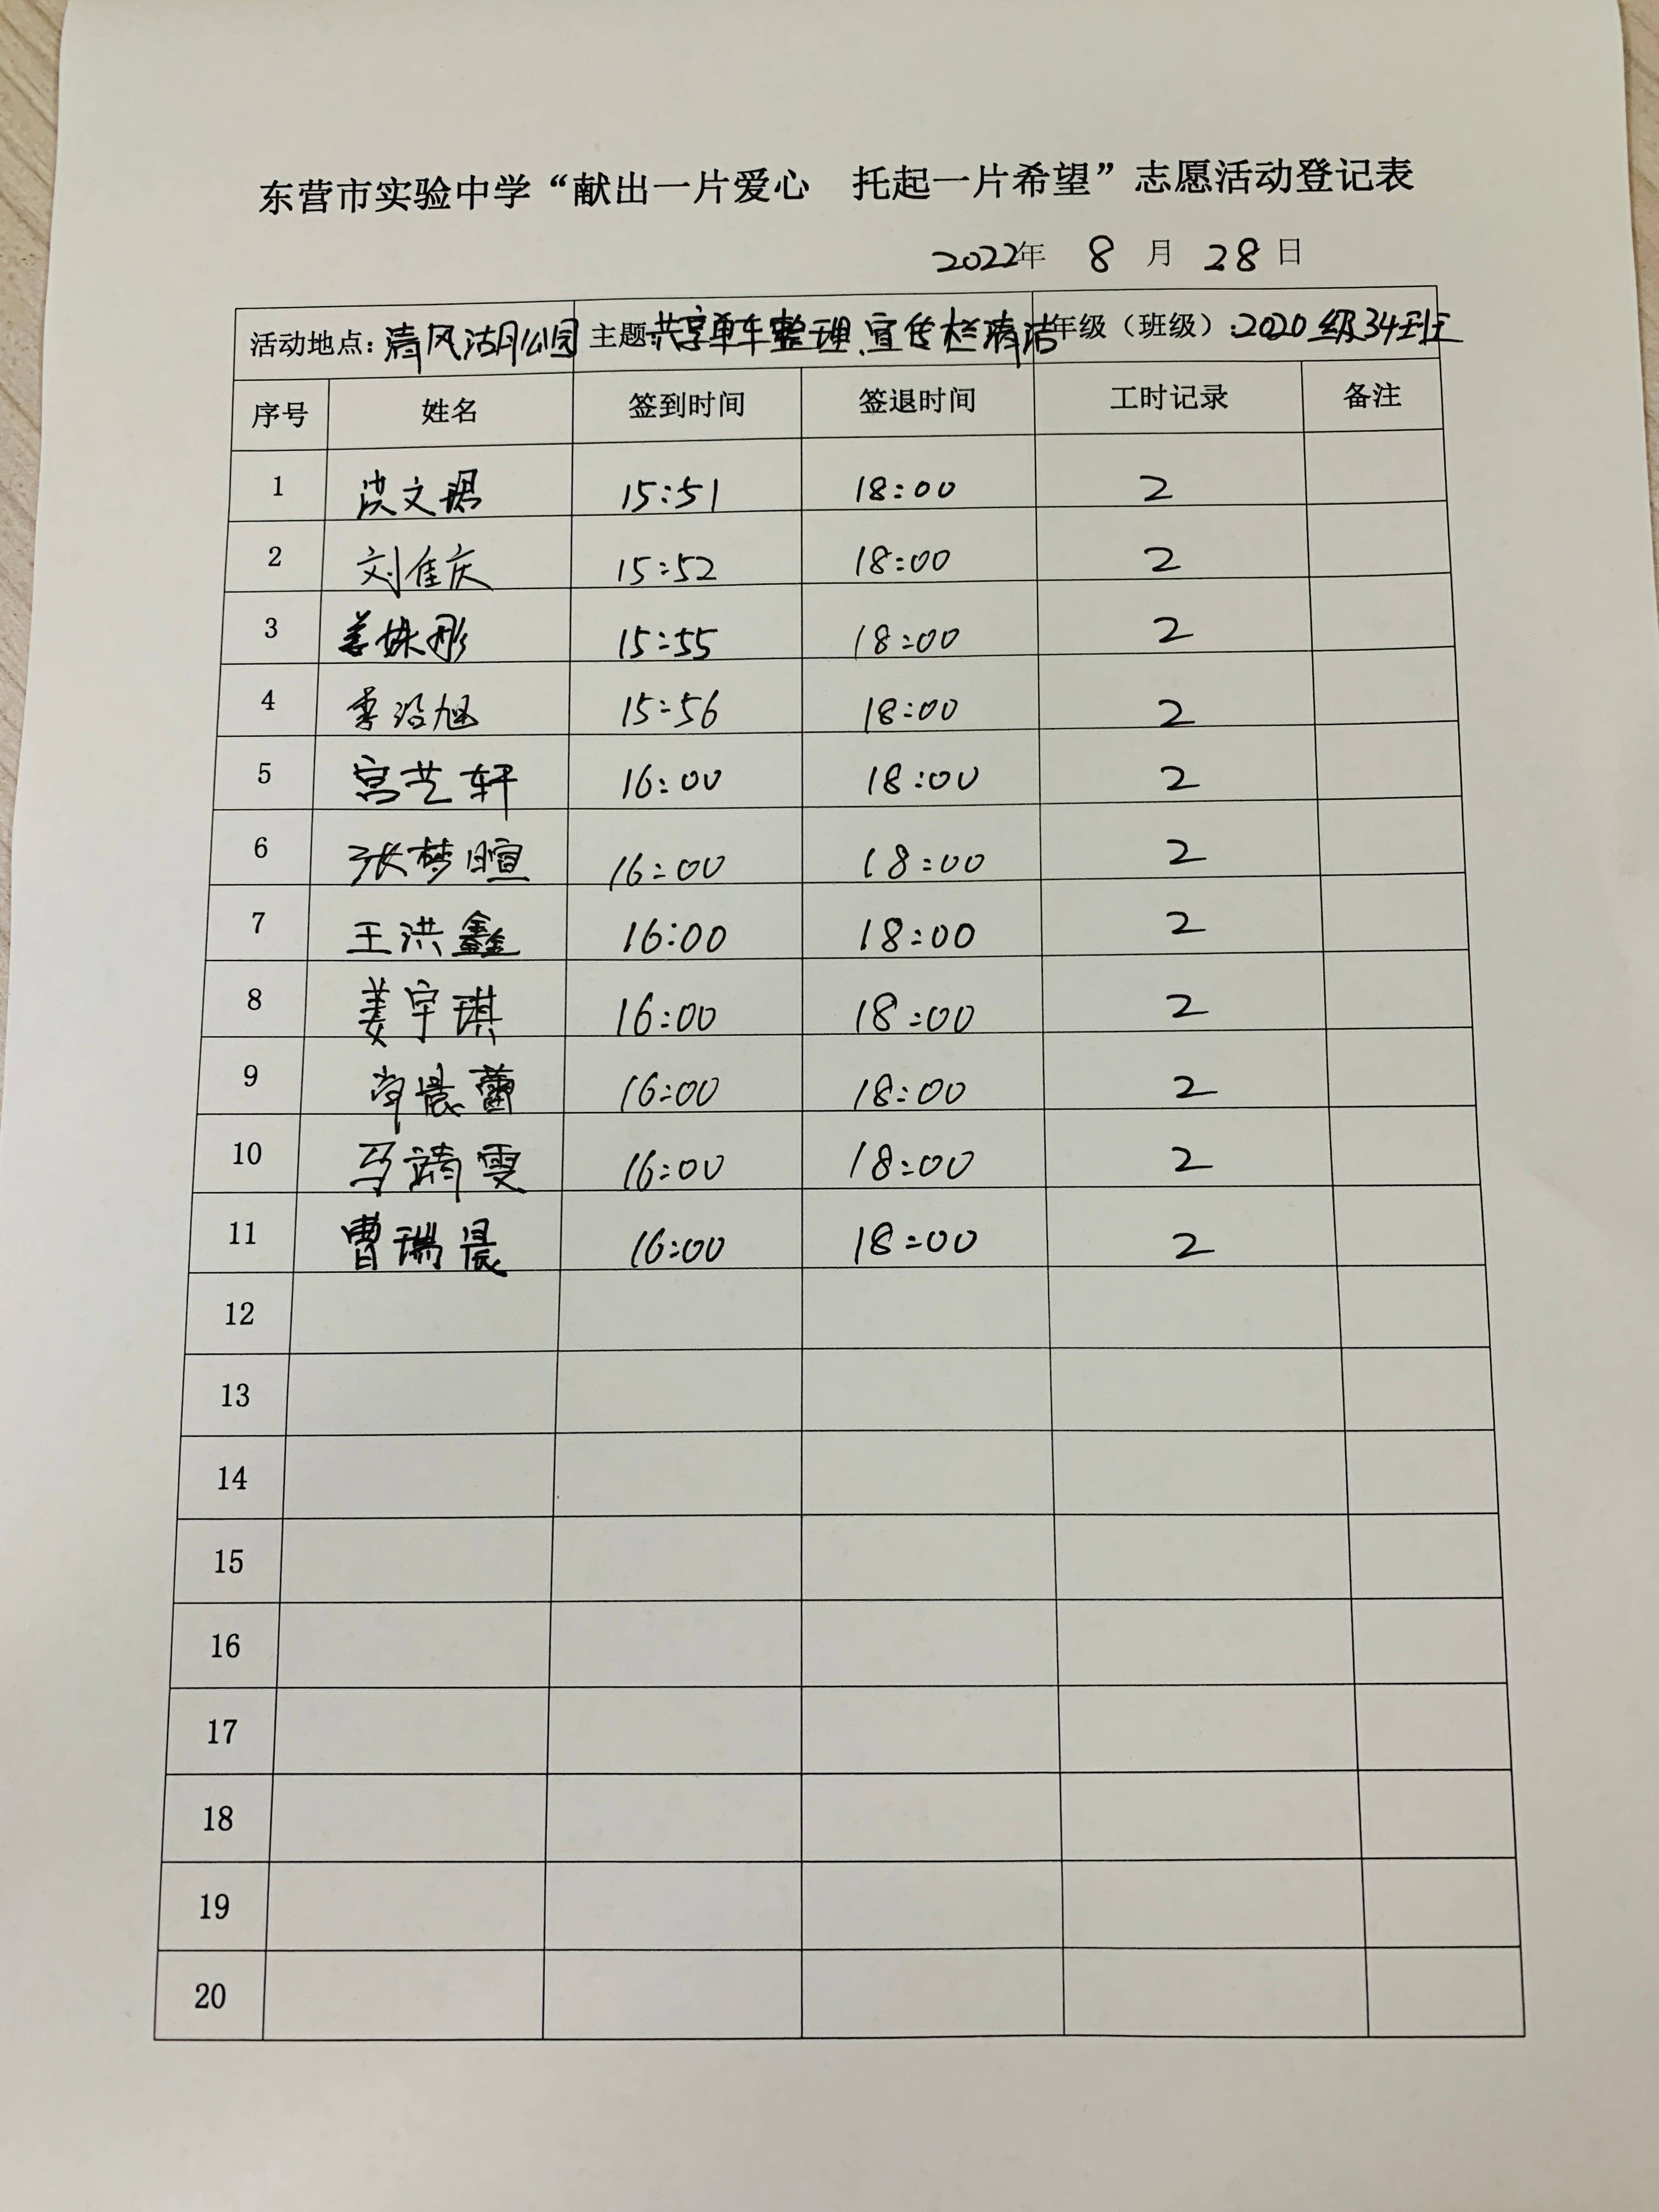 东营市实验中学“献出一片爱心　托起一片希望”志愿活动登记表
2022年 8 月 28 日
活动地点：清风湖公园 主题：共享单车整理、宣传栏清洁 年级（班级）：2020级34班
序号 姓名 签到时间 签退时间 工时记录 备注
1 洪文珺 15:51 18:00 2
2 刘佳庆 15:52 18:00 2
3 姜姝彤 15:55 18:00 2
4 李 旭 15:56 18:00 2
5 宫艺轩 16:00 18:00 2
6 张梦暄 16:00 18:00 2
7 王洪鑫 16:00 18:00 2
8 姜宇琪 16:00 18:00 2
9 晨蕾 16:00 18:00 2
10 马靖雯 16:00 18:00 2
11 曹瑞晨 16:00 18:00 2
12
13
14
15
16
17
18
19
20